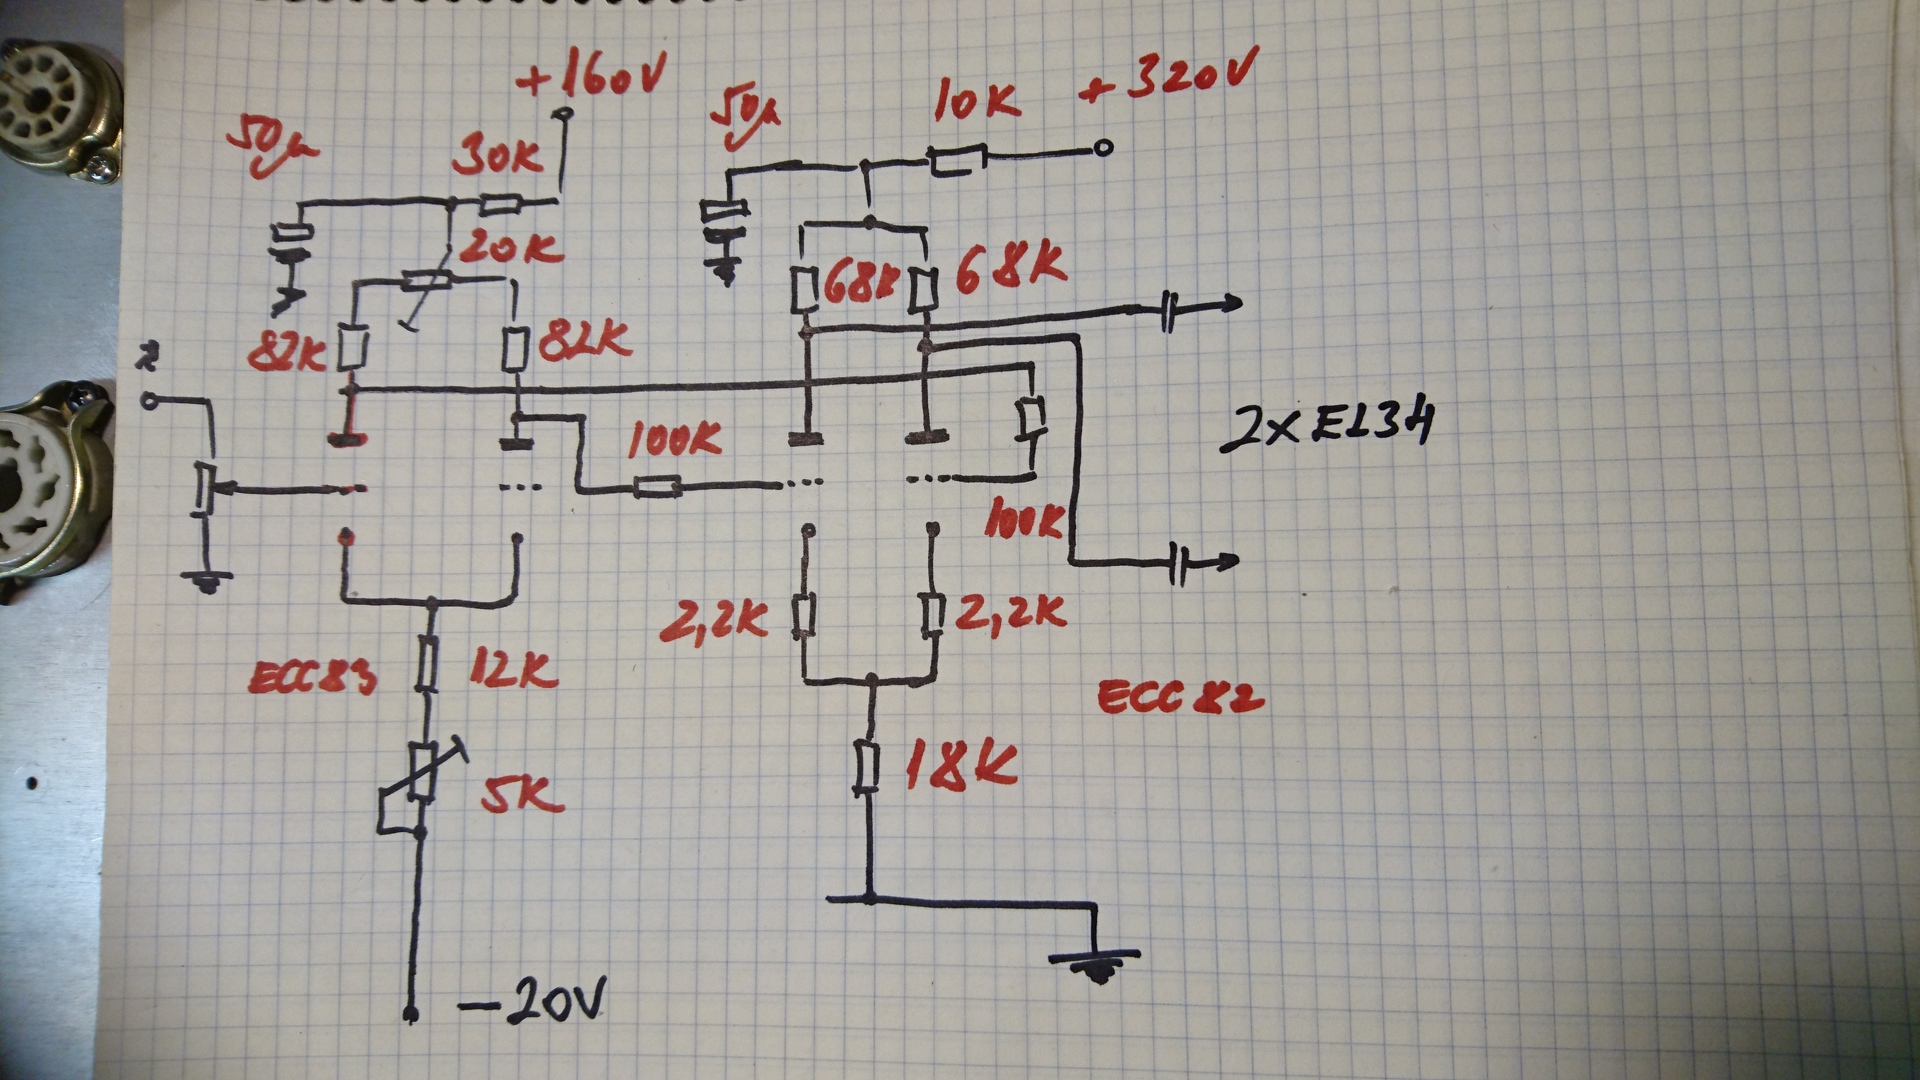 +160V
50µ
10K
+320V
50µ
30K
20K
68K
68K
82K
82K
100K
2xEL34
100K
2,2K
2,2K
ECC83
12K
ECC82
18K
5K
-20V